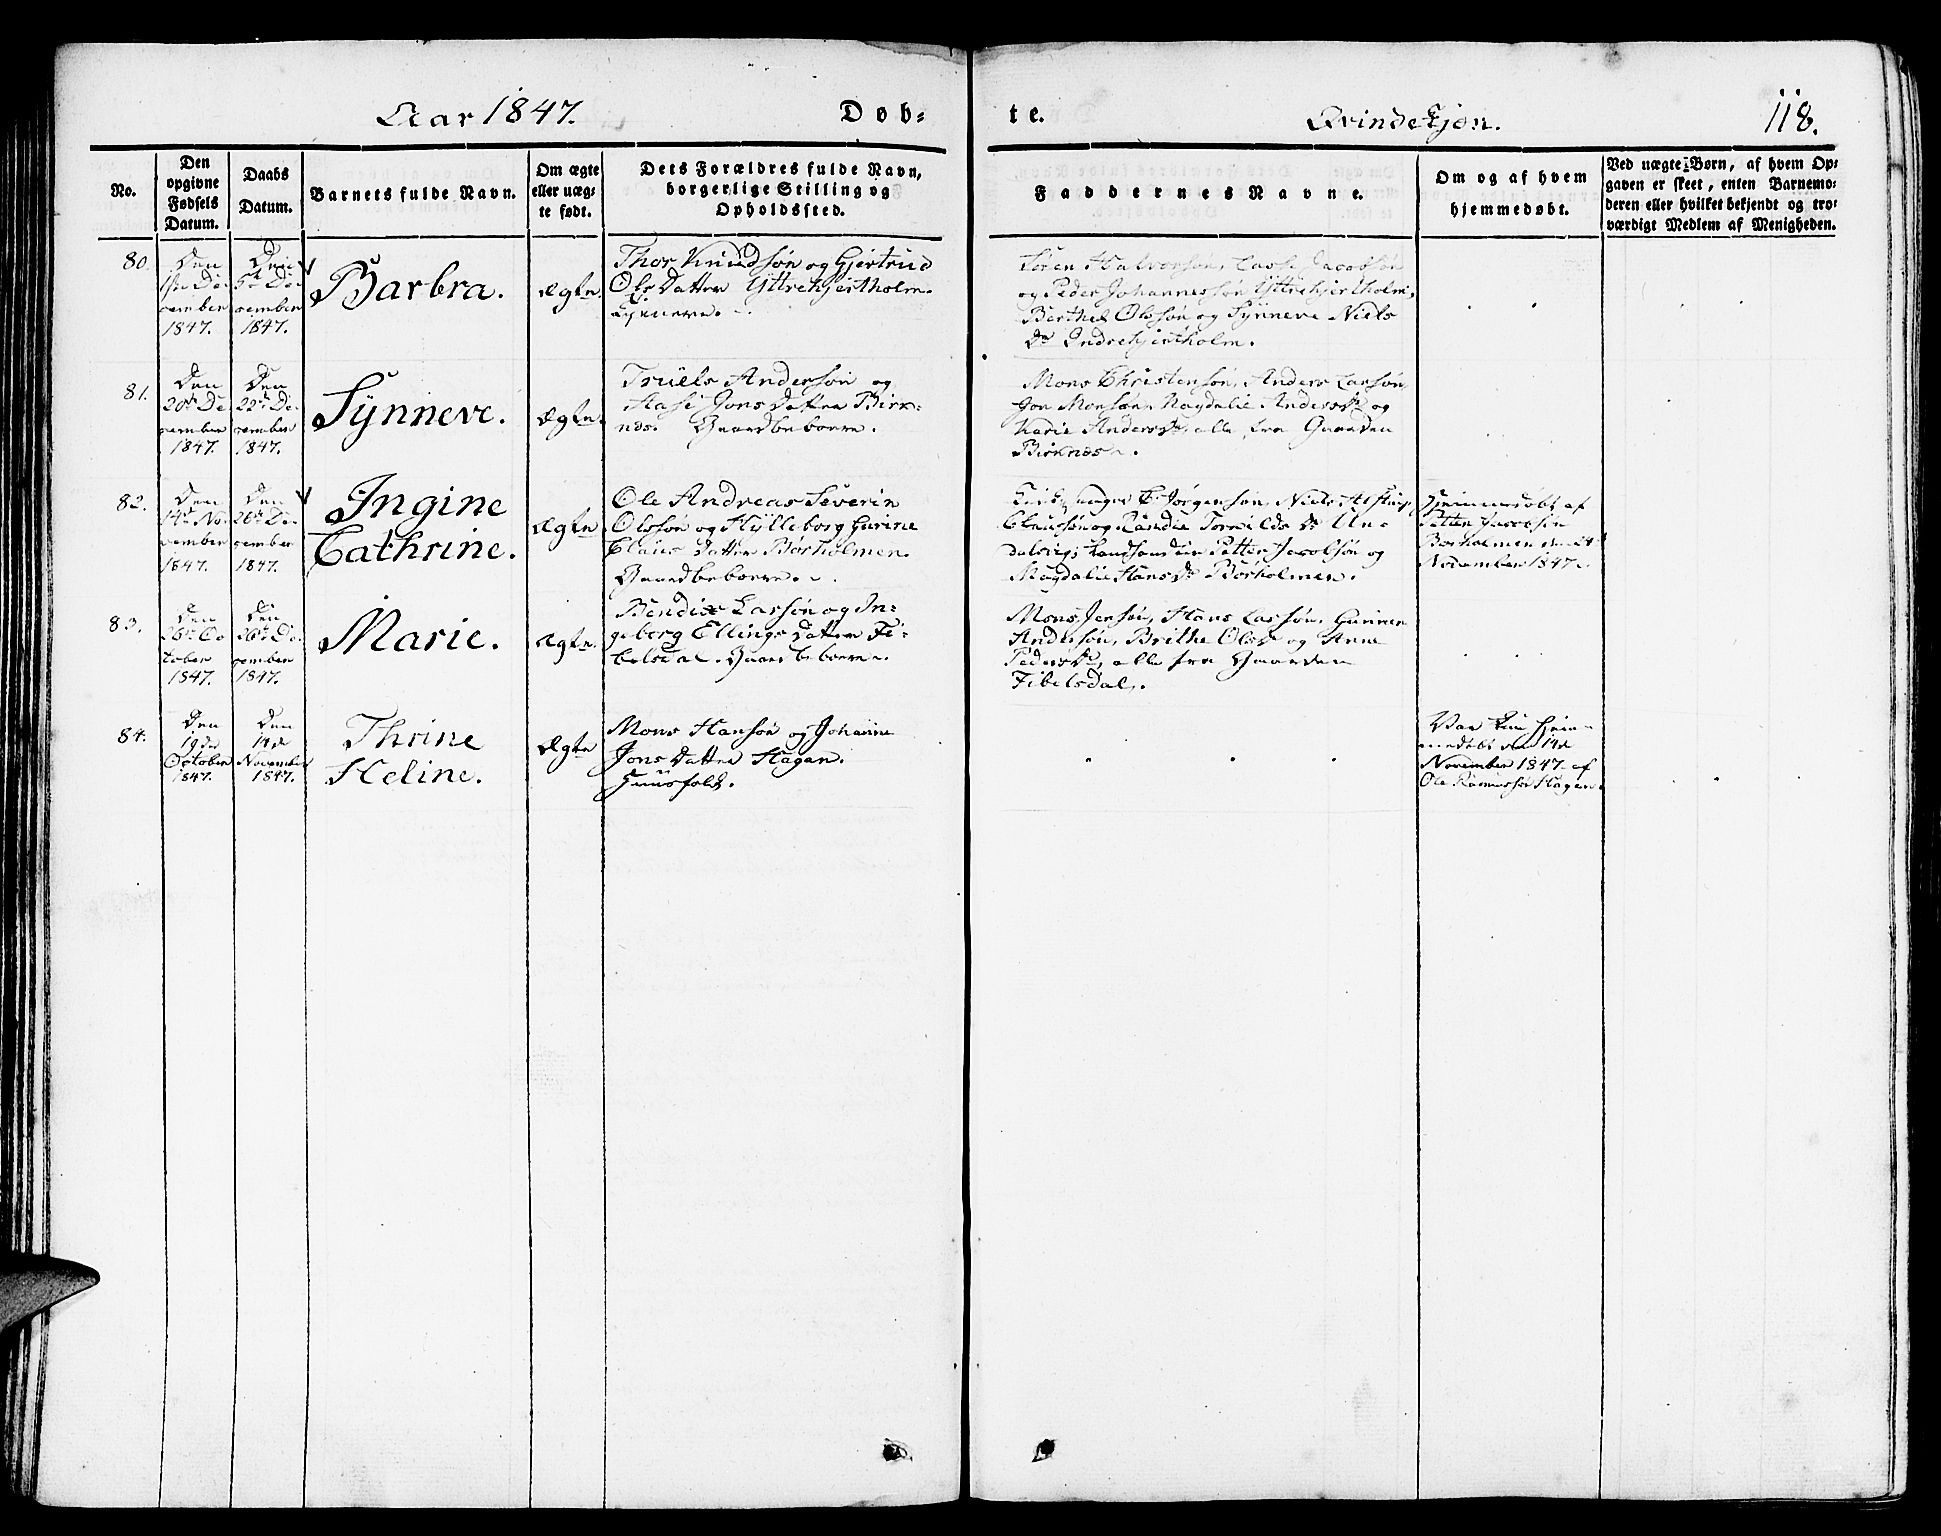 Aar 1847.
Døb-
te.
Qvindekjøn.
118.
No.
Den
opgivne
Fødsels
Datum.
Daabs
Datum.
Barnets fulde Navn.
Om ægte
eller uæg-
te født.
Dets Forældres fulde Navn,
borgerlige Stilling og
Opholdssted.
Faddernes Navne.
Om og af hvem
hjemmedøbt.
Ved uægte Børn, af hvem Op-
gaven er skeet, enten Barnemo-
deren eller hvilket bekjendt og tro-
værdigt Medlem af Menigheden.
80.
Den
De-
cember
1847.
Den
5te De-
cember
1847.
Barbra.
Ægte.
Thor Knudsøn og Gjertrud
Ols Datter Yttrehjertholm.
Søren Halvorsøn, Lasse Jacobsøn
og Peder Johannessøn Yttrehjertholm,
Berthel Olssøn og Synneve Niels
Dr Indrehjertholm.
81.
Den
20de De
cember
1847.
Den
22de De-
cember
1847.
Synneve.
Ægte.
Truels Andersøn og
Stasi Jons Datter Birk-
næs. Gaardbeboere.
Mons Christensøn, Anders Larsøn,
Jon Monsøn, Magdalie Anders Dr og
Karie Anders Dr, alle fra Gaarden
Birknæs.
82.
Den
14de No-
vember
1847.
Den
26de De-
cember
1847.
Ingine
Cathrine.
Ægte
Ole Andreas Severin
Olsson og Hylleborg Gurine
Claus Datter Børholmen.
Gaardbeboere.
Jørgensøn, Niels
Claussøn og Randie Dr Un-
dalsvig, Petter Jacobsøn og
Magdalie Hans Dr Børholmen.
Hjemmedøbt af
Petter Jacobsøn
Børholmen den
November 1847.
83.
Den
26de Oc
tober
1847.
Den
26de De-
cember
1847.
Marie.
Ægte.
Bendix Larsøn og In-
geborg Ellings Datter Fi-
belsdal. Gaardbeboere.
Mons Jensøn, Hans Larsøn, Gunner
Andersøn, Brithe Ols Dr og Anne
Peders Dr, alle fra Gaarden
Fibelsdal.
84.
Den
19de
October
1847.
Den
14de
November
1847.
Thrine
Heline.
Ægte
Mons Hansøn og Johanne
Jons Datter Hagan.
Huusfolk.
Var kun Hjem-
medøbt den 14de
November 1847 af
Ole Rasmussøn Hagan.